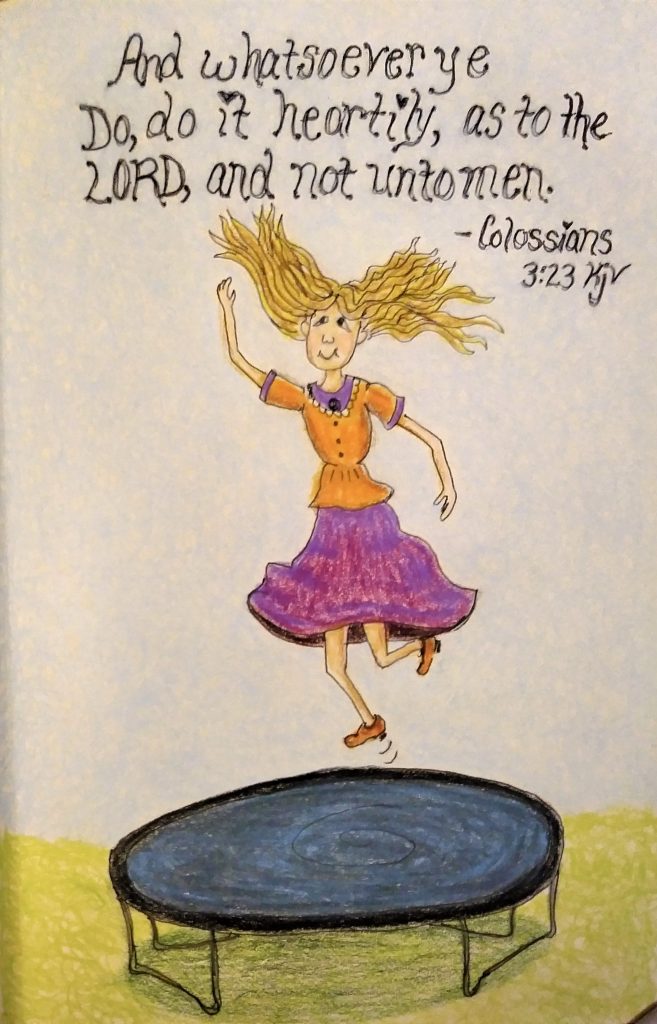 And whatsoever ye
Do, do it heartily, as to the
LORD, and not unto men.
-Colossians
3:23 KJV